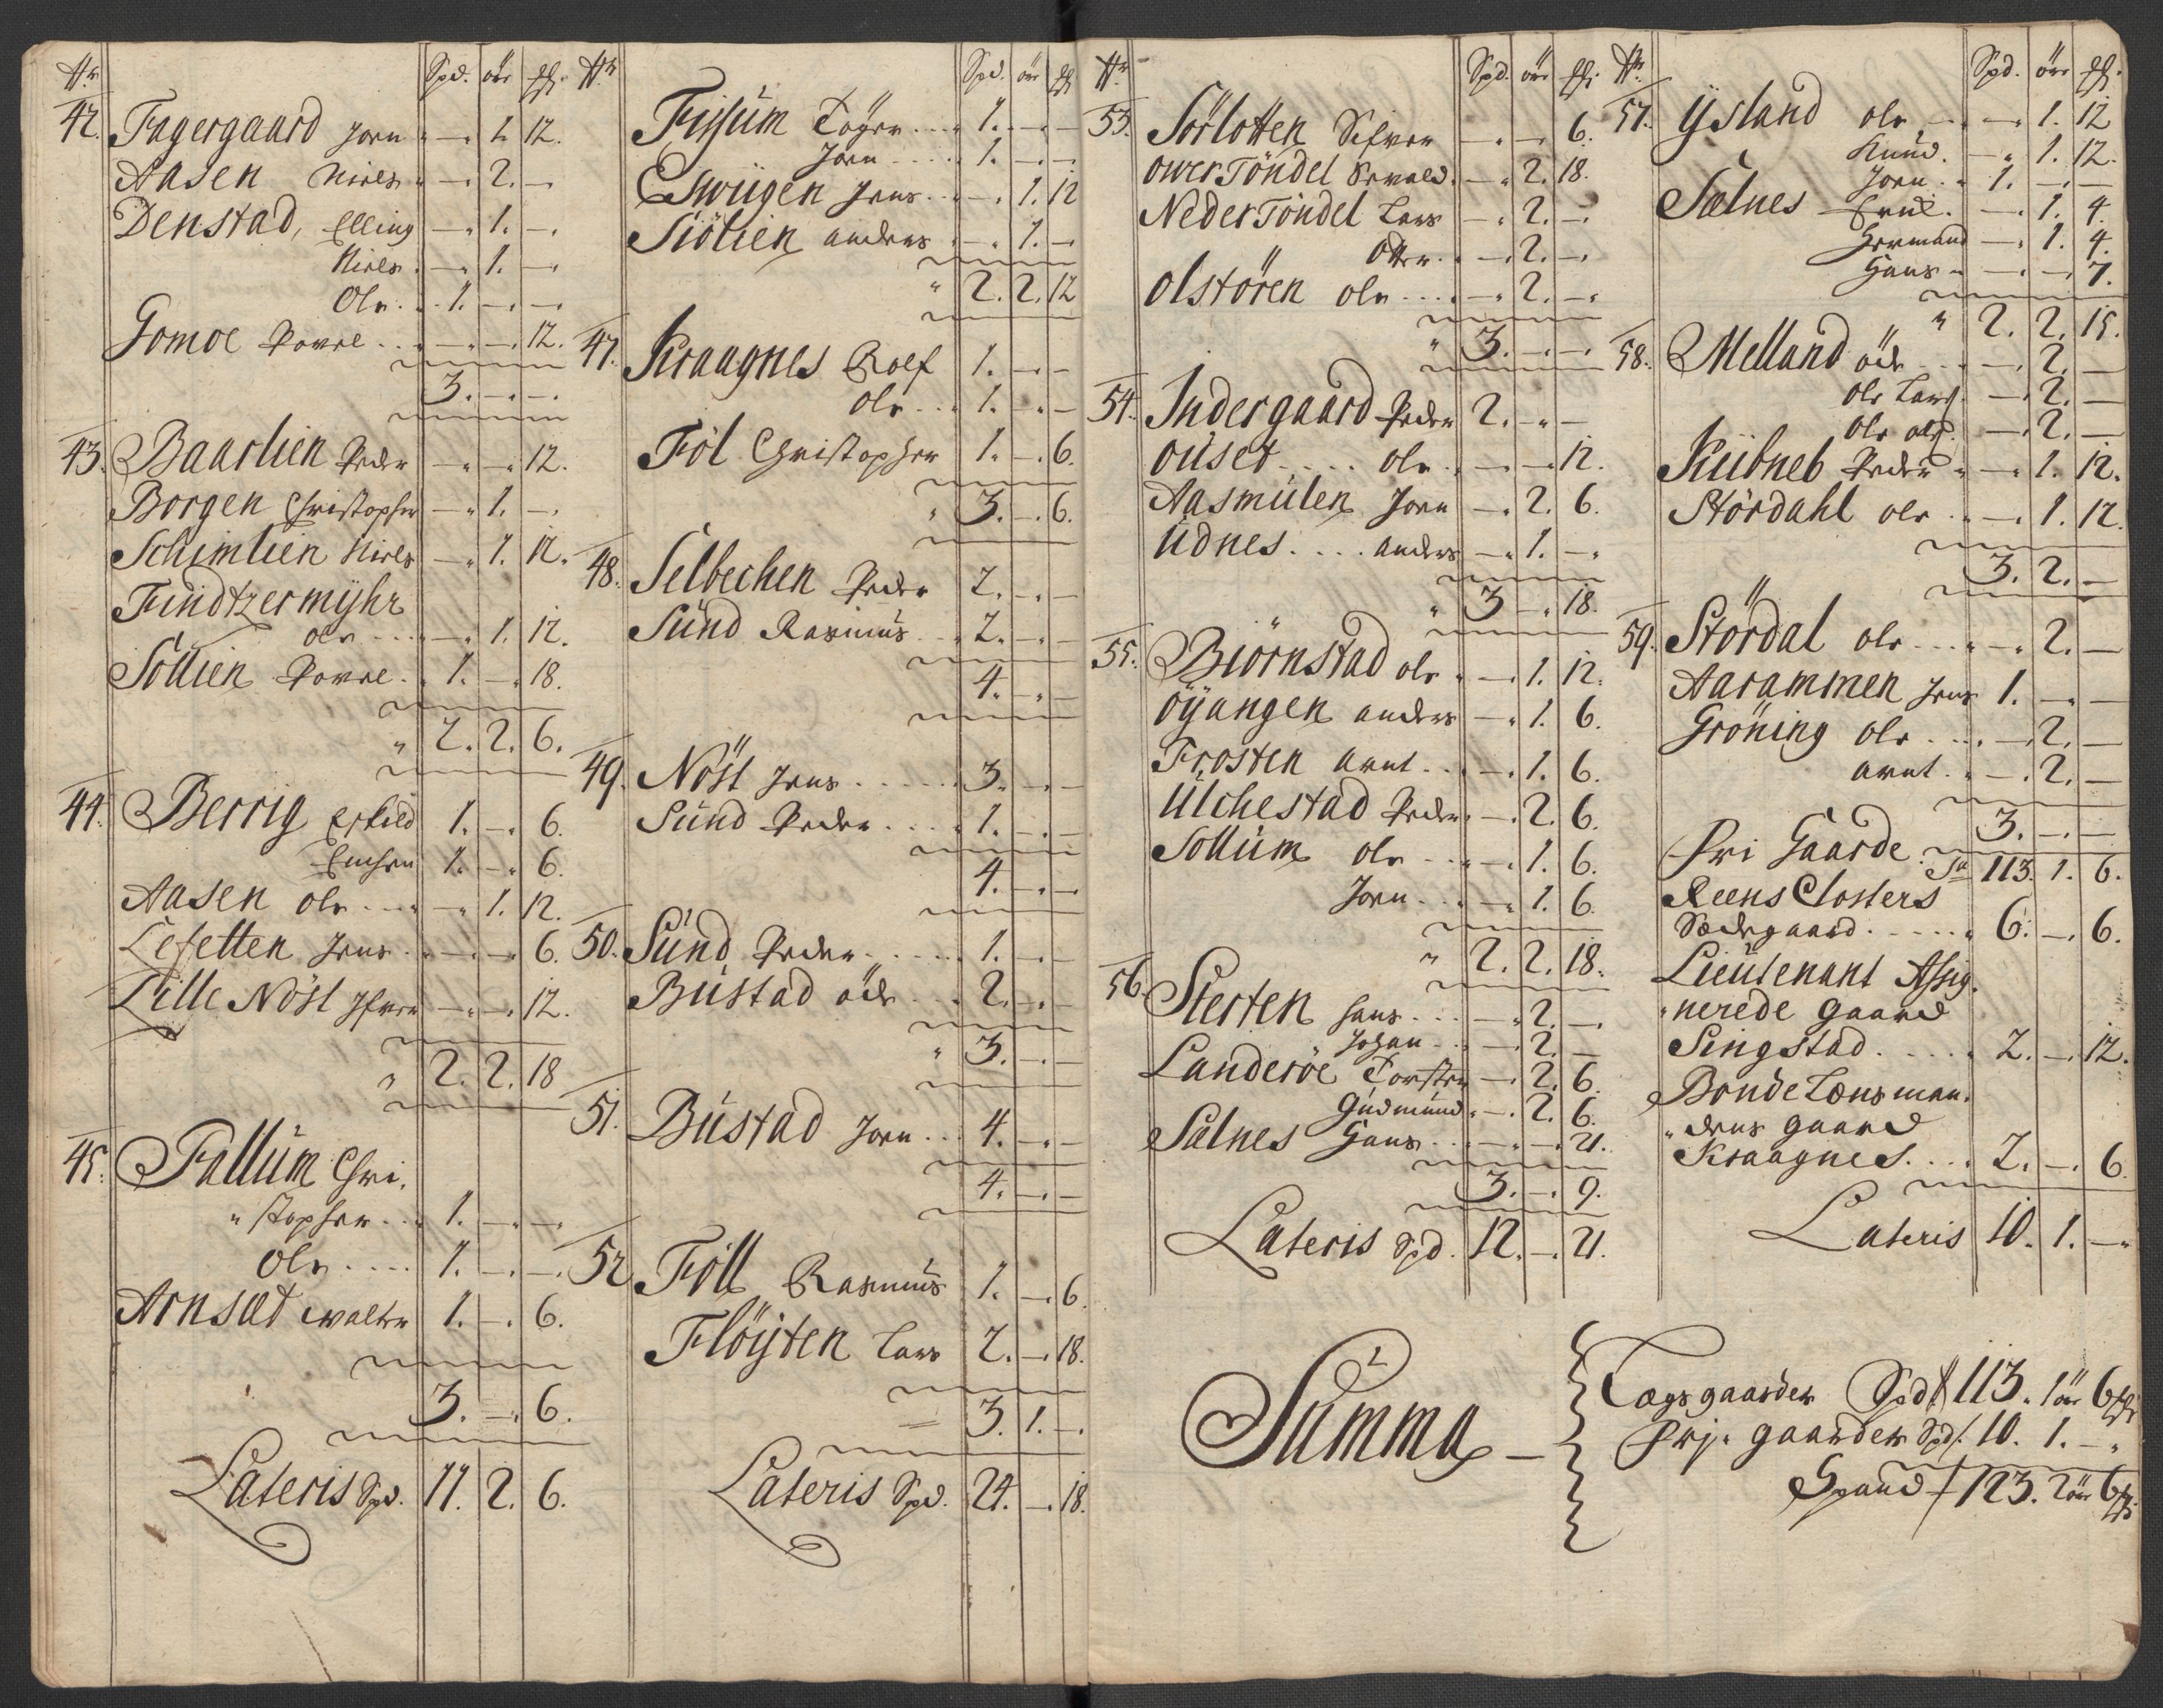 Nr. Spd. öre
42. Fagergaard Joen — 1. 12.
Aasen Niels — 2. —
Denstad, Elling — 1. —
Niels — 1. —
Ole 1. — —
Gomoe Povel — — 12.
3. — —
43. Baarlien Peder — — 12.
Borgen Christopher — 1. —
Schimlien Niels — 1. 12.
Findtzermyhr
ole — 1. 12.
Sollien Povel 1. — 18.
2. 2. 6.
44. Berrig Eskild 1. — 6.
1. — 6.
Aasen ole — 1. 12.
Lefetten Jens — — 6.
Lille Nöst Ifver — — 12.
2. 2. 18
45. Fallüm Chri,
stopher 1. — —
Ole 1. — —
Arnsæt Walter 1. — 6.
3. — 6.
Lateris Spd. 11. 2. 6.
Nr. Spd. öre
Töger 1. — —
Joen 1. — —
Jens — 1. 12
Siölien anders — 1. —
2. 2. 12
47. Kraagnes Rolf 1. — —
ole 1. — —
Föl Christopher 1. — 6.
3. — 6.
48. Selbechen Peder 2. — —
Sünd Rasmüs 2. — —
4. — —
49. Nöst Jens 3. — —
Sünd Peder 1. — —
4. — —
50. Sünd Peder 1. — —
Büstad öde 2. — —
3. — —
51. Büstad Joen 4. — —
4. — —
52. Föll Rasmüs 1. — 6.
Flöyten Lars 2. — 18.
3. 1. —
Lateris Spd. 24. — 18.
Nr. Spd. öre
53. Sörlotten Sifver — — 6.
ower Töndel — 2. 18.
Neder Töndel Lars — 2. —
Otter — 2. —
Olstören ole — 2. —
3. — —
54. Indergaard Peder 2. — —
Oüset ole — — 12.
Aasmülen Joen — 2. 6.
Üdnes anders — 1. —
3 — 18.
55. Biörnstad ole — 1. 12.
Öyangen anders — 1. 6.
Frosten arnt — 1. 6.
Ülchestad Peder — 2. 6.
Sollüm ole — 1. 6.
Joen — 1. 6.
2. 2. 18.
56. Sterten hans — 2. —
Johan — 2. —
Landeröe Torsten — 2. 6.
Güdmünd — 2. 6.
Salnes Hans — — 21.
3. — 9.
Lateris Spd. 12. — 21.
Nr. Spd. öre
57. Ysland ole — 1. 12
Knüd — 1. 12.
Joen 1. — —
Sælnes — 1. 4.
Hermand — 1. 4.
Hans — — 7.
2. 2. 15.
58. Melland öde — 2. —
ole Lars. — 2. —
ole ols. — 2. —
Peder — 1. 12.
Stördahl ole — 1. 12.
3. 2. —
59. Stördal ole — 2. —
Aarammen Jens 1. — —
Gröning ole — 2. —
arnt — 2. —
3. — —
Fri Gaarde. Sa 113. 1. 6.
Reens Closters
Sædegaard 6. — 6.
Lieütenant Assig,
nerede gaard
Singstad 2. — 12.
Bonde Lensman,
dens gaard
Kraagnes 2. — 6
Lateris 10. 1. —
Summa — Lægsgaarder Spd 113. 1 öre 6
Frje gaarder Spd. 10. 1. —
Spand 123. 2 öre 6